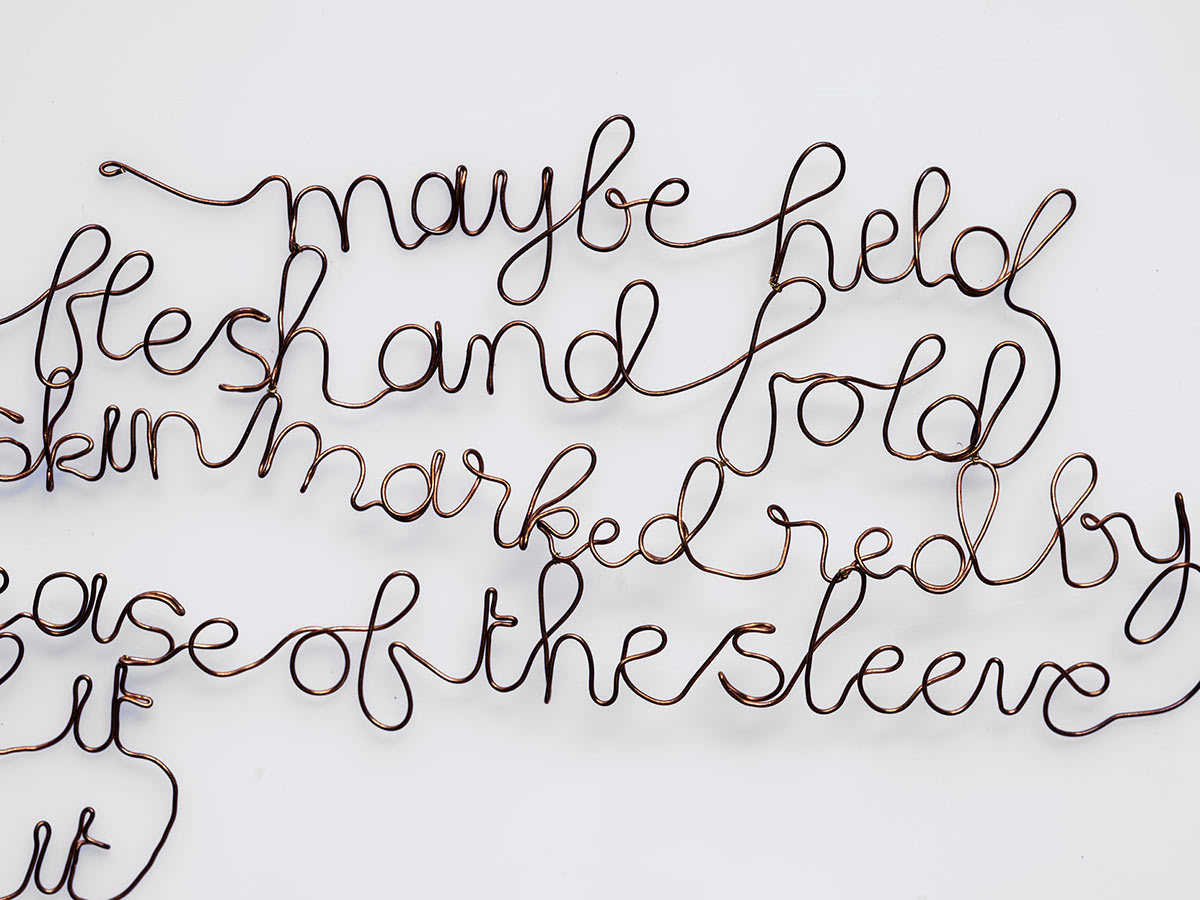 maybe held
flesh and fold
skin marked red by
ease of the sleeve
it
it